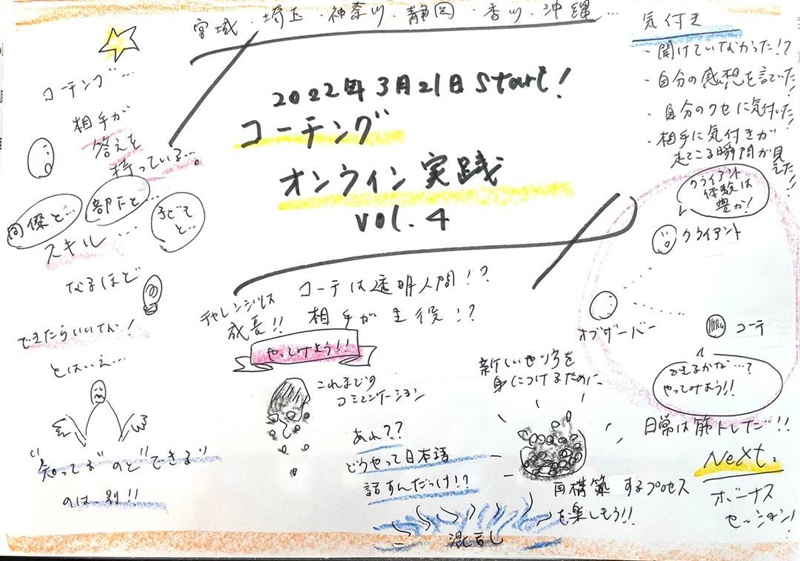 宮城・埼玉・神奈川・静岡・香川・沖縄…
2022年3月21日 Start!
コーチング
オンライン実践
vol. 4
コーチング…
相手が
答えを
持っている…。
同僚と…
部下と…
子どもと…
スキル…
なるほど
できたらいいな!
とはいえ…
"知ってる"のと"できる"
のは別!!
チャレンジは
成長!!
コーチは透明人間!?
相手が主役!?
やってみよう!!
これまでの
コミュニケーション
あれ??
どうやって日本語
話すんだっけ!?
混乱し
新しいやり方を
身につけるために
再構築するプロセス
を楽しもう!!
気付き
・聞けていなかった!?
・自分の感想を言ってた!
・自分のクセに気付いた!
・相手に気付きが
起こる瞬間が見えた!!
クライアント
体験は
豊か!
クライアント
オブザーバー
コーチ
できるかな…?
やってみよう!!
日常は筋トレだ!!
Next:
ボーナス
セッション!